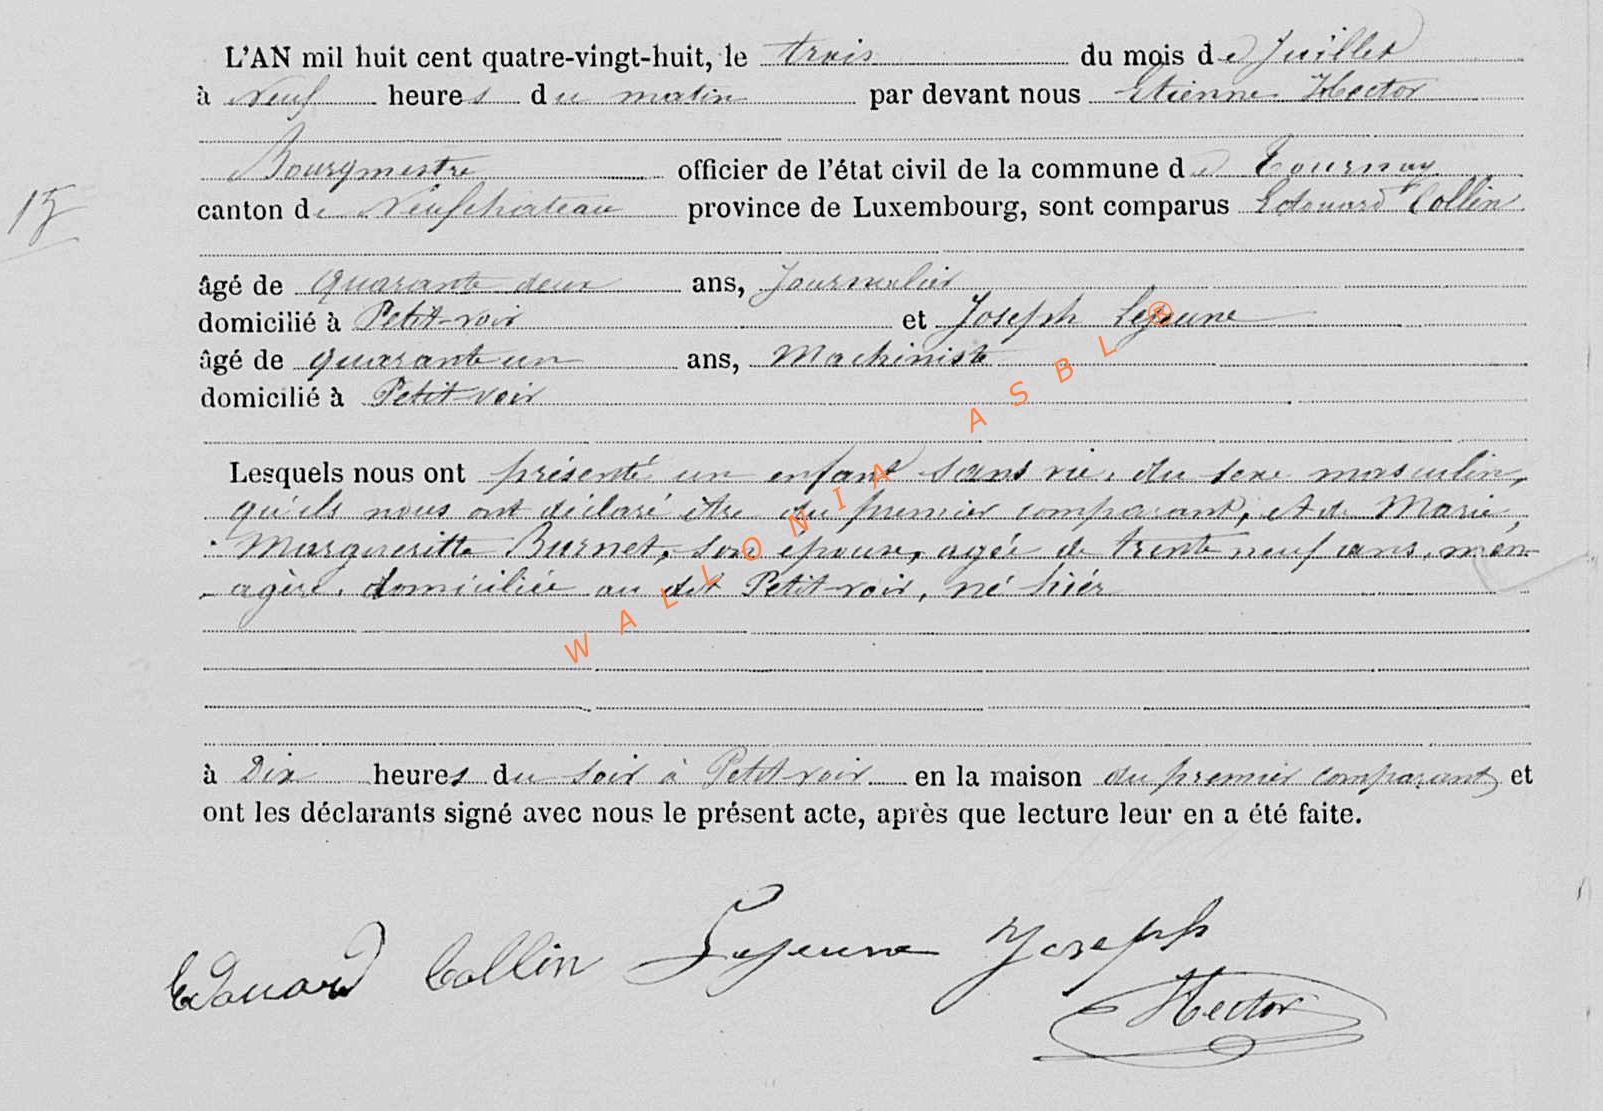 L'AN mil huit cent quatre-vingt-huit, le trois du mois de Juillet
à Neuf heures du matin par devant nous Etienne Hector
Bourgmestre officier de l'état civil de la commune de Tournay
15
canton de Neufchateau province de Luxembourg, sont comparus Edouard Collin
âgé de quarante deux ans, Journalier
domicilié à Petit-voir et Joseph Lejeune
âgé de quarante un ans, Machiniste
domicilié à Petit voir
Lesquels nous ont présenté un enfant sans vie, du sexe masculin,
qu'ils nous ont déclaré être du premier comparant, et de Marie,
Margueritte Burnet, son épouse, agée de trente neuf ans, mén
agère, domiciliée au dit Petit-voir, né hiér
à Dix heures du soir à Petit voir en la maison du premier comparant et
ont les déclarants signé avec nous le présent acte, après que lecture leur en a été faite.
Edouard Collin Lejeune Joseph
Hector
WALLONIA ASBL ®